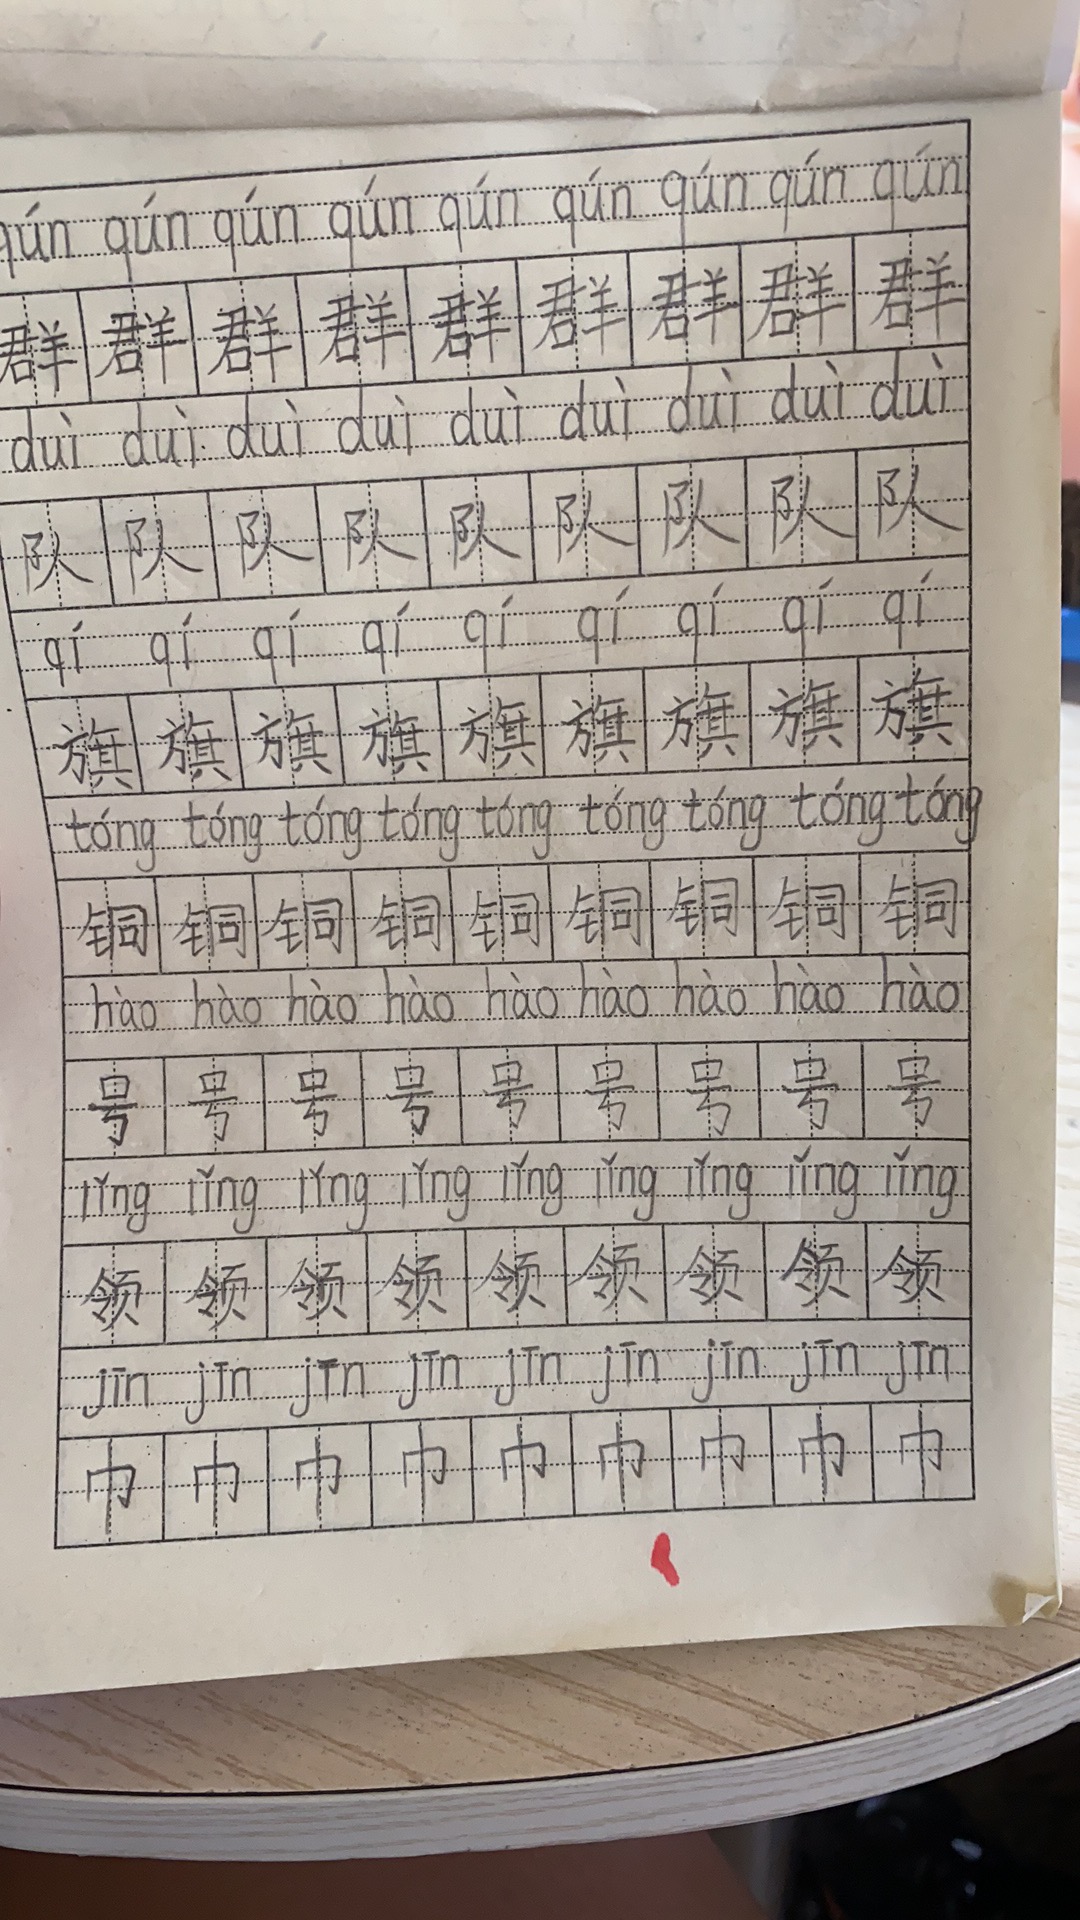 qún qún qún qún qún qún qún qún qún
群 群 群 群 群 群 群 群 群
duì duì duì duì duì duì duì duì duì
队 队 队 队 队 队 队 队 队
qí qí qí qí qí qí qí qí qí
旗 旗 旗 旗 旗 旗 旗 旗 旗
tóng tóng tóng tóng tóng tóng tóng tóng tóng
铜 铜 铜 铜 铜 铜 铜 铜 铜
hào hào hào hào hào hào hào hào hào
号 号 号 号 号 号 号 号 号
lǐng lǐng lǐng lǐng lǐng lǐng lǐng lǐng lǐng
领 领 领 领 领 领 领 领 领
jīn jīn jīn jīn jīn jīn jīn jīn jīn
巾 巾 巾 巾 巾 巾 巾 巾 巾